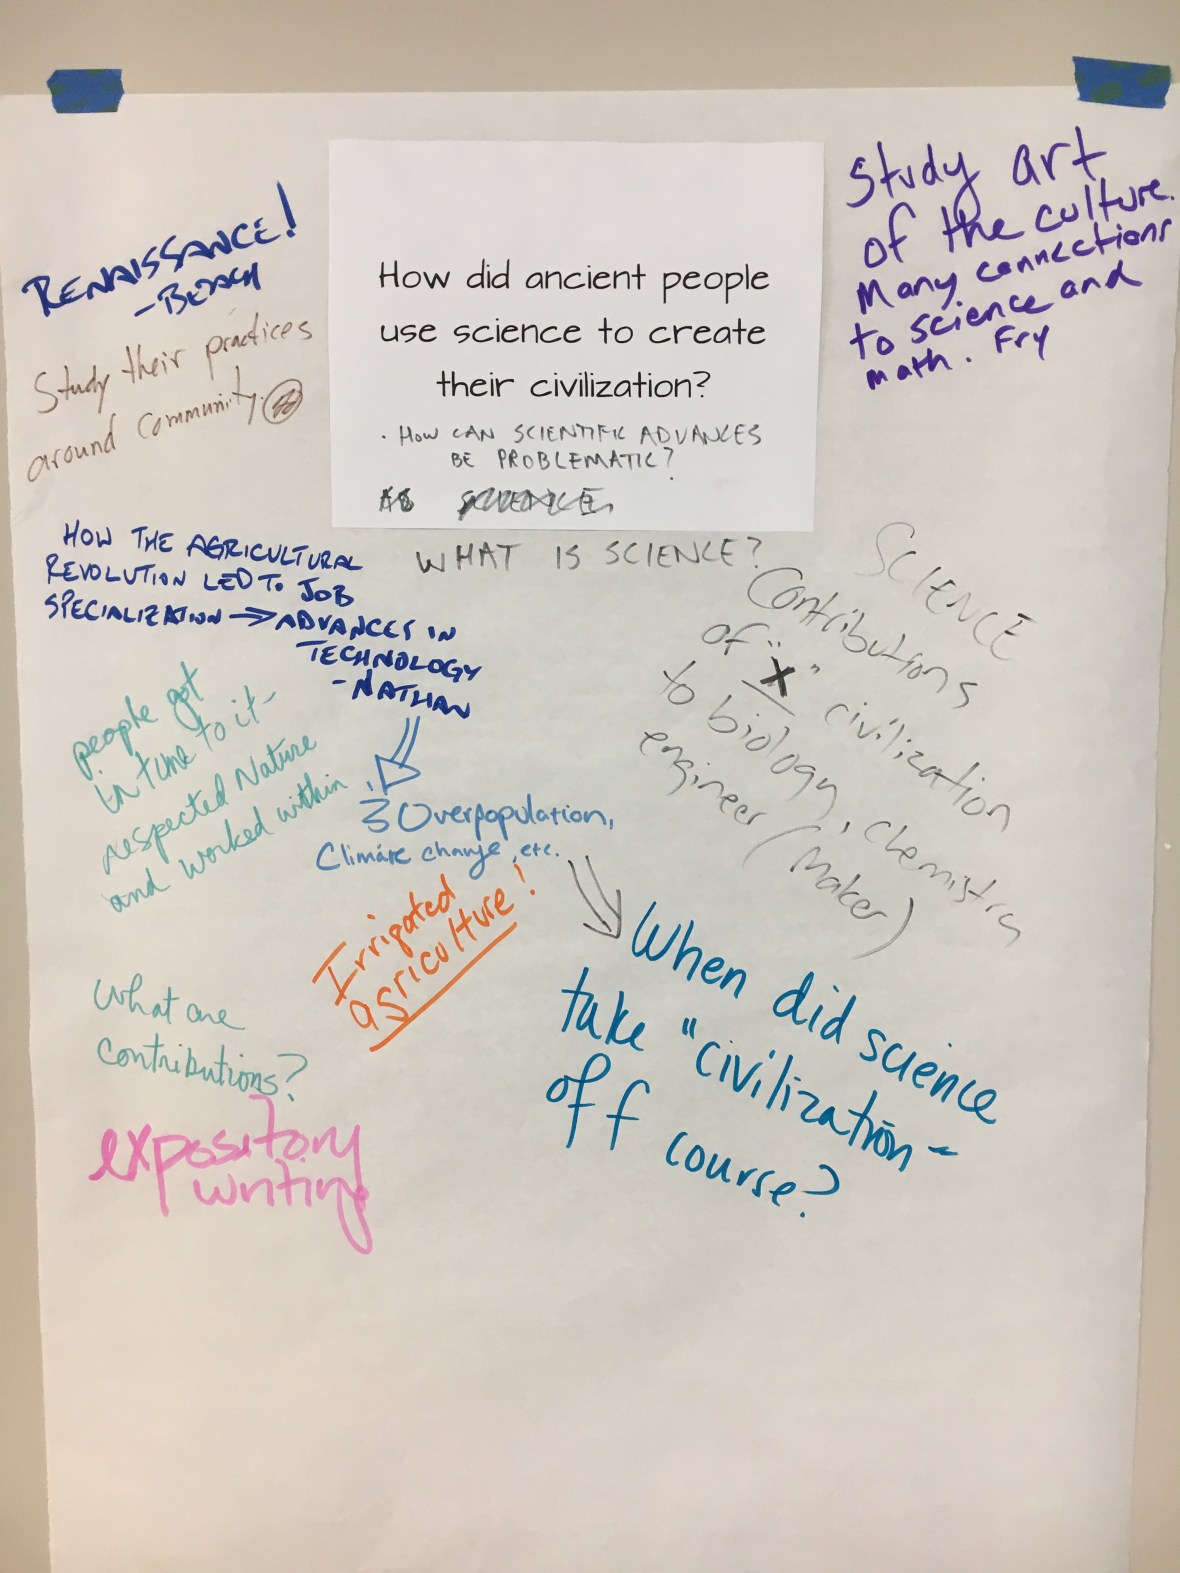 How did ancient people
use science to create
their civilization?
· HOW CAN SCIENTIFIC ADVANCES
BE PROBLEMATIC?
AS SCIENCE
WHAT IS SCIENCE?
RENAISSANCE!
Study their practices
around community.
HOW THE AGRICULTURAL
REVOLUTION LED TO JOB
SPECIALIZATION → ADVANCES IN
TECHNOLOGY
- NATHAN
people got
in tune to it -
respected Nature
and worked within
Overpopulation,
Climate change, etc.
Irrigated
agriculture!
What are
contributions?
expository
writing
Study art
of the culture.
Many connections
to science and
math. Fry
SCIENCE
Contributions
of "X" civilization
to biology, chemistry
engineer (Maker)
When did science
take "civilization"
off course?